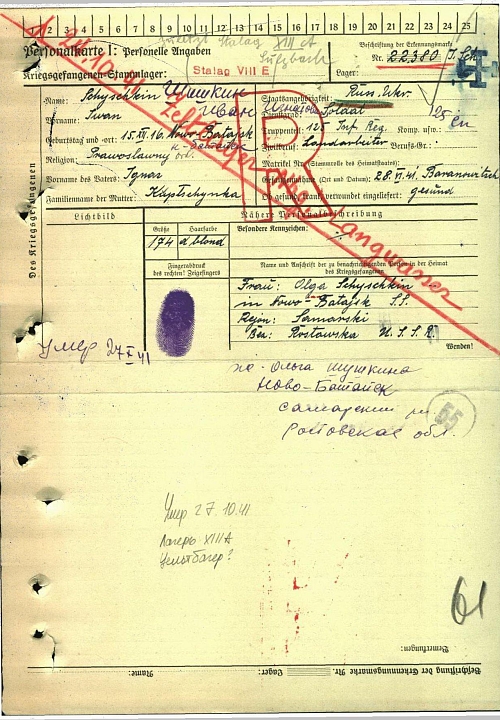 1 2 3 4 5 6 7 8 9 10 11 12 13 14 15 16 17 18 19 20 21 22 23 24 25
Personalkarte I: Personelle Angaben
Stalag XIII A
Sulzbach
Beschriftung der Erkennungsmarke
Nr. 22380
Kriegsgefangenen-Stammlager:
Stalag VIII E
Lager:
Des Kriegsgefangenen
Name: Schyschkin Шишкин
Staatsangehörigkeit: Russ. Ukr.
Vorname: Iwan Иван
Dienstgrad: Soldat
Truppenteil: 125 Inf. Reg. Komp. usw.:
Geburtstag und -ort: 15.III.16. Nowo-Batajsk
Zivilberuf: Landarbeiter Berufs-Gr.:
Religion: Prawoslawny
Matrikel Nr. (Stammrolle des Heimatstaates):
Vorname des Vaters: Ignas
Gefangennahme (Ort und Datum): 28.VI.41. Baranowitsch
Familienname der Mutter: Kluptschynka
Ob gesund, krank, verwundet eingeliefert: gesund
Zeltlager Langwasser
Lichtbild
Nähere Personalbeschreibung
Größe
Haarfarbe
Besondere Kennzeichen:
174
d blond
Fingerabdruck
des rechten Zeigefingers
Name und Anschrift der zu benachrichtigenden Person in der Heimat
des Kriegsgefangenen
Frau: Olga Schyschkin
in Nowo-Batajsk S.S.
Rejon: Samarski
Bez: Rostowska U.S.S.R.
Wenden!
Умер 27 X 41
Ольга Шишкина
Ново-Батайск
Самарский
Ростовская обл.
55
Умер 27.10.41
Лагерь XIII A
Цельтлагер?
61
Bemerkungen:
Beschriftung der Erkennungsmarke Nr. Lager: Name: